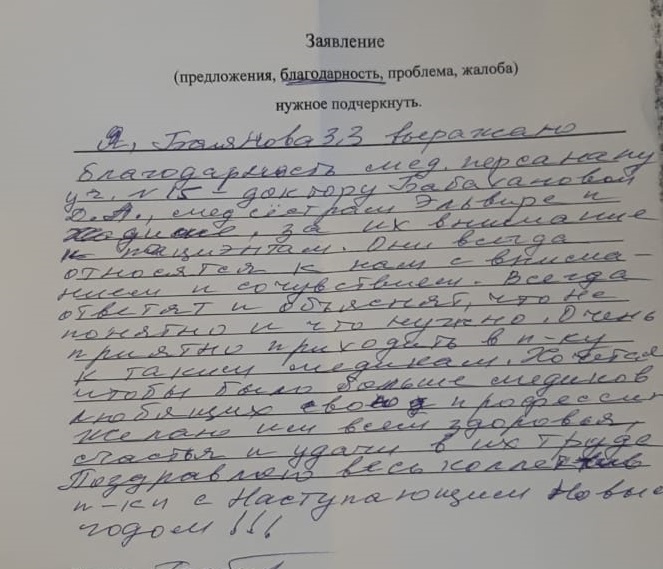 Заявление
(предложения, благодарность, проблема, жалоба)
нужное подчеркнуть.
Я, Баянова З,З выражаю
благодарность мед. персаналу
уч. №15 доктору Бабахановой
О.А., мед сёстрам Эльвире и
за их внимание
к пациэнтам. Они всегда
относятся к нам с внима-
нием и сочувствием. Всегда
ответят и объяснят, что не
понятно и что нужно. Очень
приятно приходить в п-ку
к таким медикам. Хочется
чтобы было больше медиков
любящих свою професси
Желаю им всем здоровья,
счастья и удачи в их труде
Поздравляю весь коллектив
п-ки с Наступающим Новые
годом!!!